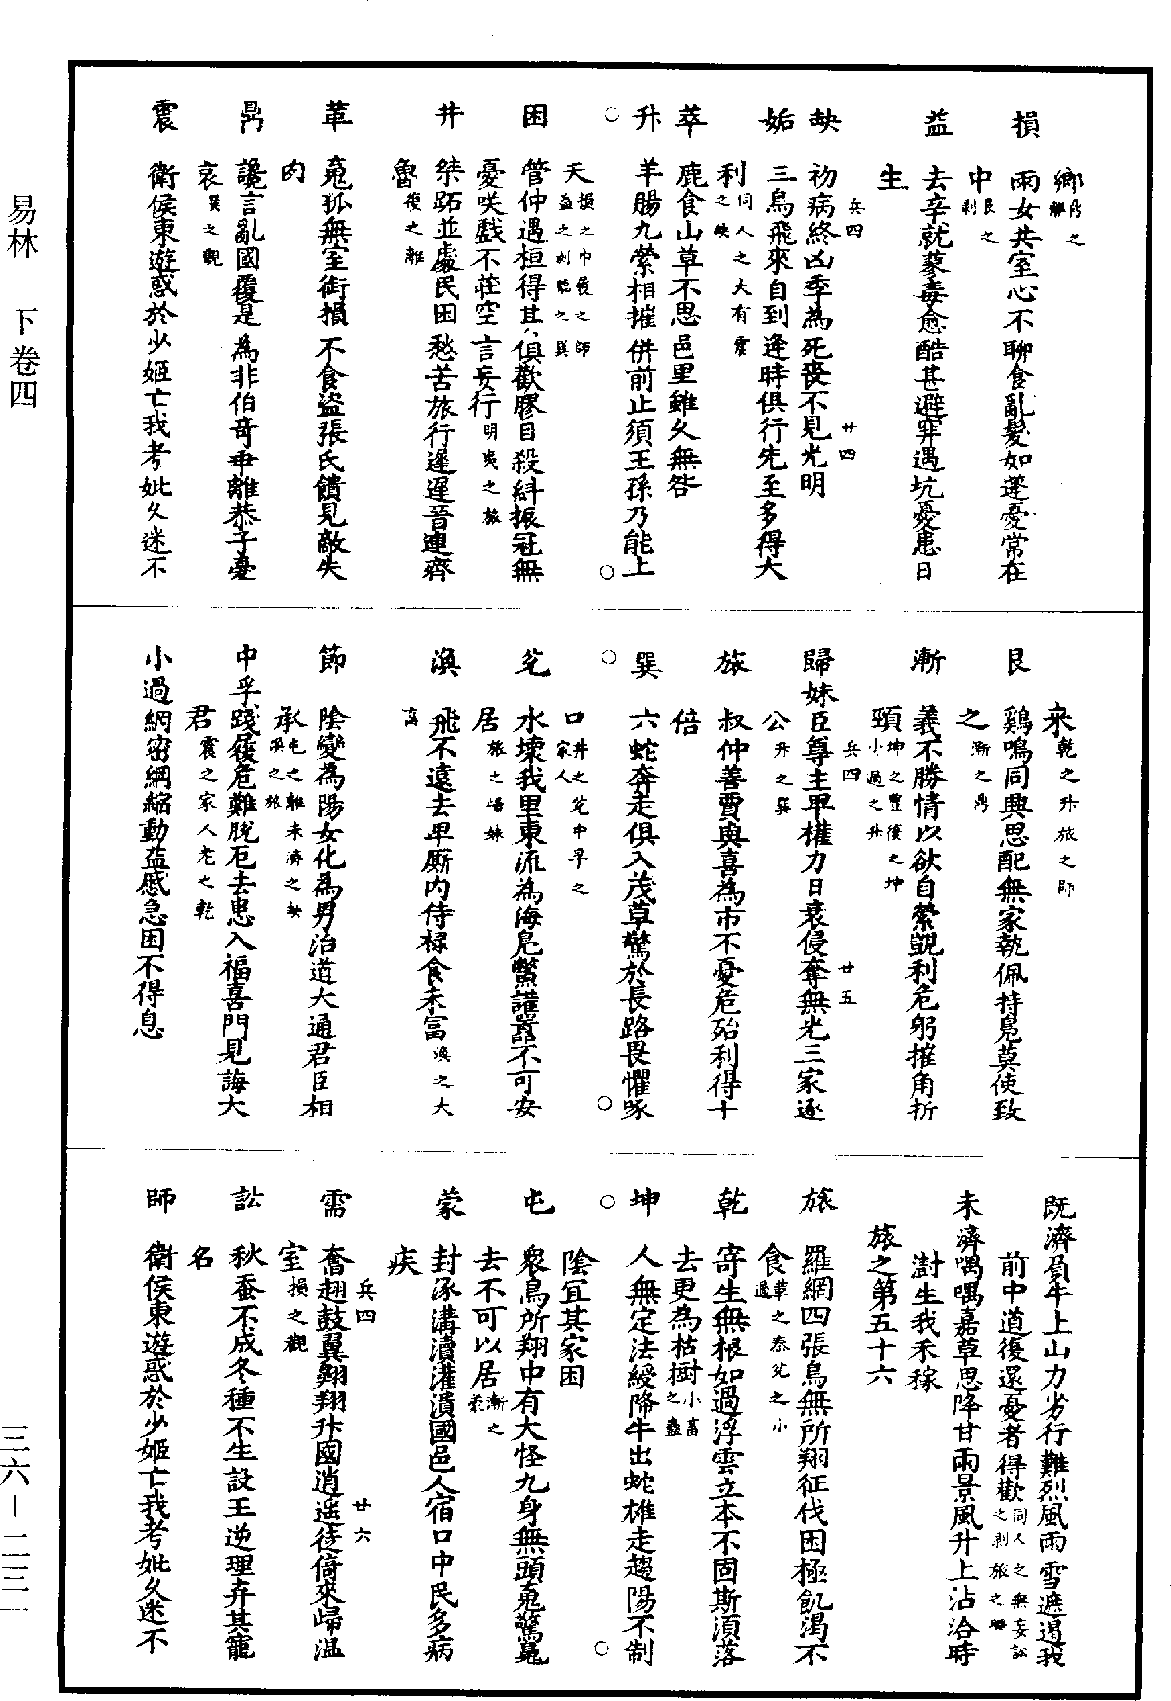 易林　下卷四
鄉
損　兩女共室心不聊食亂髮如蓬憂常在
中艮之剝
益　去辛就蓼毒愈酷甚避穽遇坑憂患日
生
兵四　廿四
夬　初病終凶季為死喪不見光明
姤　三鳥飛來自到逢時俱行先至多得大
利同人之大有
萃　鹿食山草不思邑里雖久無咎
升　羊腸九縈相摧併前止須王孫乃能上
天
困　管仲遇桓得其俱歡膠目殺糾振冠無
憂咲戲不莊空言妄行明夷之旅
井　桀跖並處民困愁苦旅行遲遲晉連齊
魯復之離
革　鳧孤無室銜損不食盜張氏饋見敵失
肉
鼎　讒言亂國覆是為非伯奇乖離恭子憂
哀巽之觀
震　衛侯東遊惑於少姬亡我考妣久迷不
來乾之升旅之師
艮　鷄鳴同興思配無家執佩持鳧莫使致
之漸之鼎
漸　義不勝情以欲自縈覬利危躬摧角折
頸
兵四　廿五
歸妹　臣尊主卑權力日衰侵奪無光三家逐
公升之巽
旅　叔仲善賈與喜為市不憂危殆利得十
倍
巽　六蛇奔走俱入茂草驚於長路畏懼啄
口井之兌中孚之家人
兌　水壞我里東流為海鳧鱉讙囂不可安
居旅之歸妹
渙　飛不遠去卑廝內侍祿食未富渙之大
節　陰變為陽女化為男治道大通君臣相
承屯之離未濟之
中孚　踐履危難脫厄去患入福喜門見誨大
君震之家人
小過　網密網縮動益蹙急困不得息
既濟　負牛上山力劣行難烈風雨雪遮遏我
前中道復還憂者得歡
未濟　喁喁嘉草思降甘雨景風升上沾洽時
澍生我禾稼
旅之第五十六
旅　羅網四張鳥無所翔征伐困極飢渴不
食革之泰兌之小過
乾　寄生無根如過浮雲立本不固斯須落
去更為枯樹小畜之蠱
坤　人無定法綬降牛出蛇雄走趨陽不制
陰宜其家困
屯　衆鳥所翔中有大怪九身無頭鳧驚鬼
去不可以居
蒙　封豕溝瀆灌潰國邑人宿口中民多病
疾
兵四　廿六
需　奮翅鼓翼翱翔升國逍遙徙倚來歸溫
室損之觀
訟　秋蚕不成冬種不生設王逆理弃其寵
名
師　衛侯東遊惑於少姬亡我考妣久迷不
三六—二三一